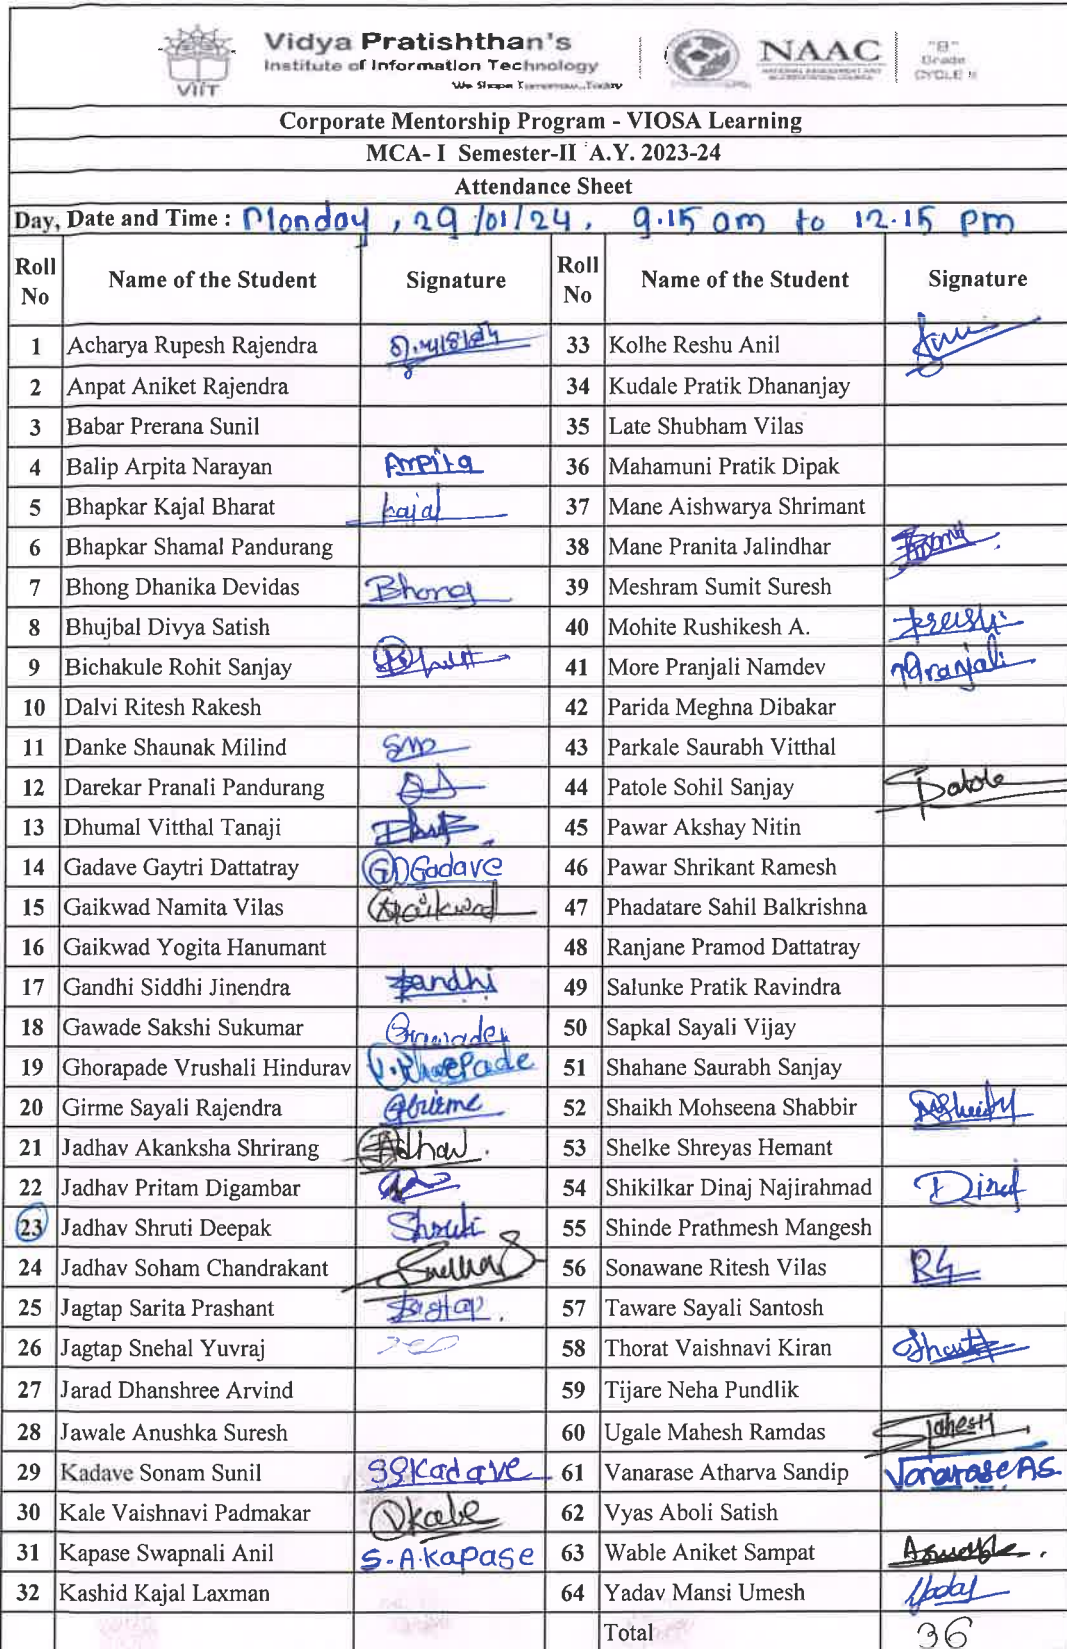 Vidya Pratishthan's
Institute of Information Technology
We Shape Tomorrow...Today
VIIT
NAAC
NATIONAL ASSESSMENT AND
ACCREDITATION COUNCIL
"B"
Grade
CYCLE II
Corporate Mentorship Program - VIOSA Learning
MCA- I Semester-II A.Y. 2023-24
Attendance Sheet
Day, Date and Time : Monday , 29/01/24 , 9.15 am to 12.15 pm
Roll No Name of the Student Signature Roll No Name of the Student Signature
1 Acharya Rupesh Rajendra 33 Kolhe Reshu Anil
2 Anpat Aniket Rajendra 34 Kudale Pratik Dhananjay
3 Babar Prerana Sunil 35 Late Shubham Vilas
4 Balip Arpita Narayan Arpita 36 Mahamuni Pratik Dipak
5 Bhapkar Kajal Bharat kajal 37 Mane Aishwarya Shrimant
6 Bhapkar Shamal Pandurang 38 Mane Pranita Jalindhar
7 Bhong Dhanika Devidas Bhong 39 Meshram Sumit Suresh
8 Bhujbal Divya Satish 40 Mohite Rushikesh A.
9 Bichakule Rohit Sanjay 41 More Pranjali Namdev Pranjali
10 Dalvi Ritesh Rakesh 42 Parida Meghna Dibakar
11 Danke Shaunak Milind 43 Parkale Saurabh Vitthal
12 Darekar Pranali Pandurang 44 Patole Sohil Sanjay Patole
13 Dhumal Vitthal Tanaji 45 Pawar Akshay Nitin
14 Gadave Gaytri Dattatray GDGadave 46 Pawar Shrikant Ramesh
15 Gaikwad Namita Vilas Gaikwad 47 Phadatare Sahil Balkrishna
16 Gaikwad Yogita Hanumant 48 Ranjane Pramod Dattatray
17 Gandhi Siddhi Jinendra Gandhi 49 Salunke Pratik Ravindra
18 Gawade Sakshi Sukumar Gawade 50 Sapkal Sayali Vijay
19 Ghorapade Vrushali Hindurav 51 Shahane Saurabh Sanjay
20 Girme Sayali Rajendra 52 Shaikh Mohseena Shabbir
21 Jadhav Akanksha Shrirang Jadhav 53 Shelke Shreyas Hemant
22 Jadhav Pritam Digambar 54 Shikilkar Dinaj Najirahmad Dinaj
23 Jadhav Shruti Deepak Shruti 55 Shinde Prathmesh Mangesh
24 Jadhav Soham Chandrakant 56 Sonawane Ritesh Vilas
25 Jagtap Sarita Prashant Jagtap 57 Taware Sayali Santosh
26 Jagtap Snehal Yuvraj 58 Thorat Vaishnavi Kiran
27 Jarad Dhanshree Arvind 59 Tijare Neha Pundlik
28 Jawale Anushka Suresh 60 Ugale Mahesh Ramdas Mahesh
29 Kadave Sonam Sunil SSKadave 61 Vanarase Atharva Sandip Vanarase AS.
30 Kale Vaishnavi Padmakar Vkale 62 Vyas Aboli Satish
31 Kapase Swapnali Anil S.A.Kapase 63 Wable Aniket Sampat
32 Kashid Kajal Laxman 64 Yadav Mansi Umesh Yadav
Total 36